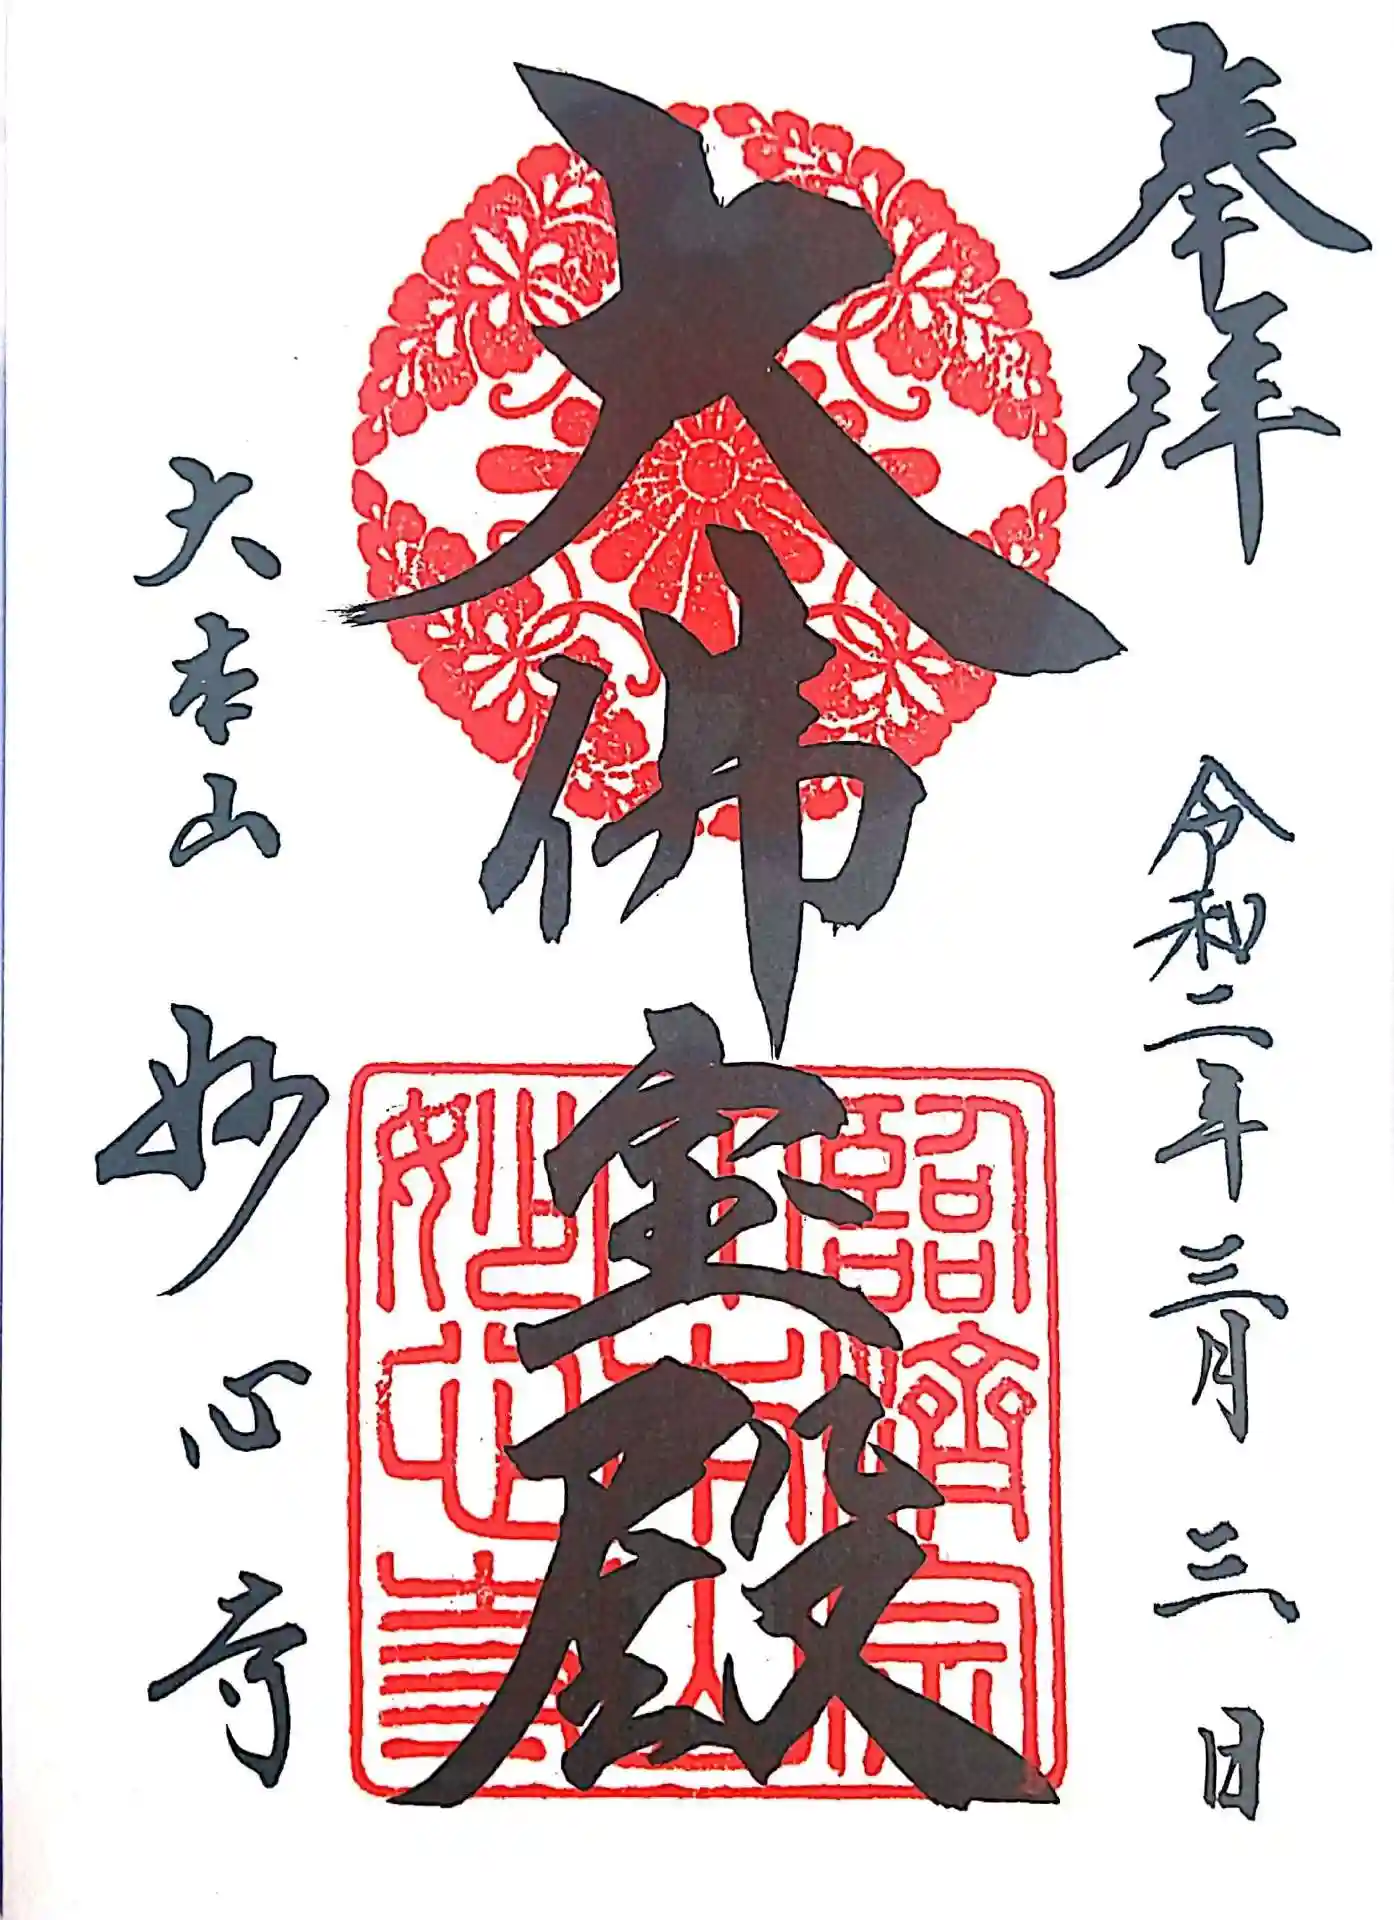 奉拝
令和二年三月三日
大佛宝殿
大本山 妙心寺
臨濟宗
妙心寺